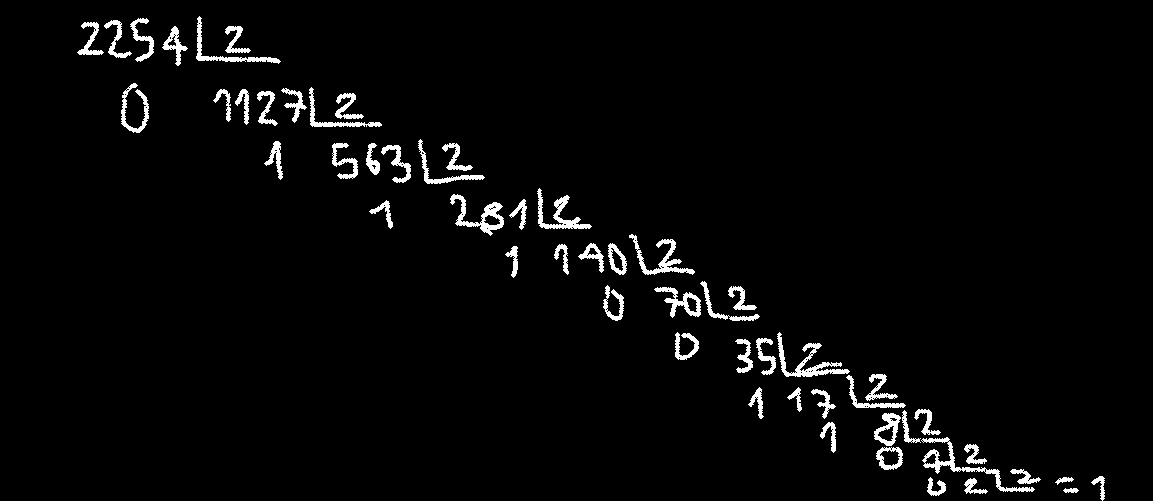 2254 2
0 1127 2
1 563 2
1 281 2
1 140 2
0 70 2
0 35 2
1 17 2
1 8 2
0 4 2
0 2 2 = 1